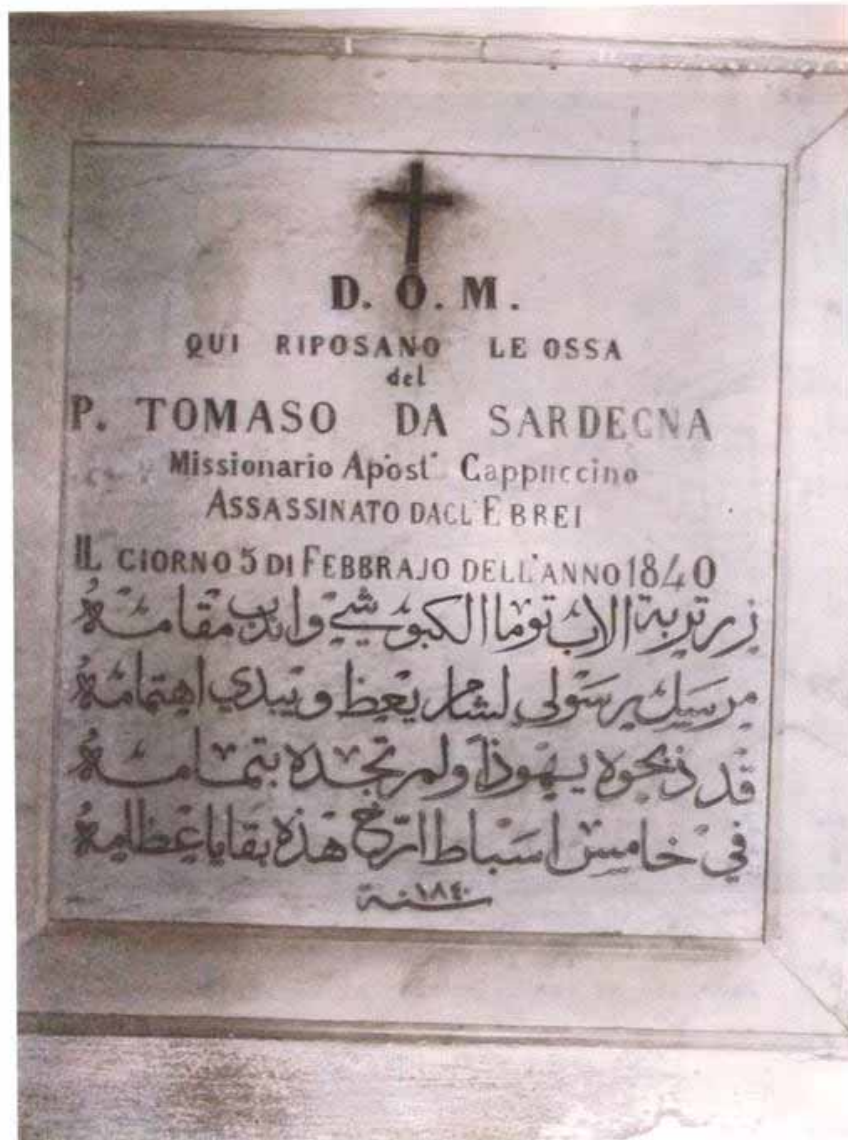 D. O. M.
QUI RIPOSANO LE OSSA
del
P. TOMASO DA SARDEGNA
Missionario Apost. Cappuccino
ASSASSINATO DAGL'EBREI
IL GIORNO 5 DI FEBBRAJO DELL'ANNO 1840
زر تربة الاب توما الكبوشي واندب مقامه
مرسل رسولي لشام يعظ ويبدي اهتمامه
قد ذبحوه يهوذا ولم تجده بتمامه
في خامس اسباط ارّخ هذه بقايا عظامه
سنة ١٨٤٠